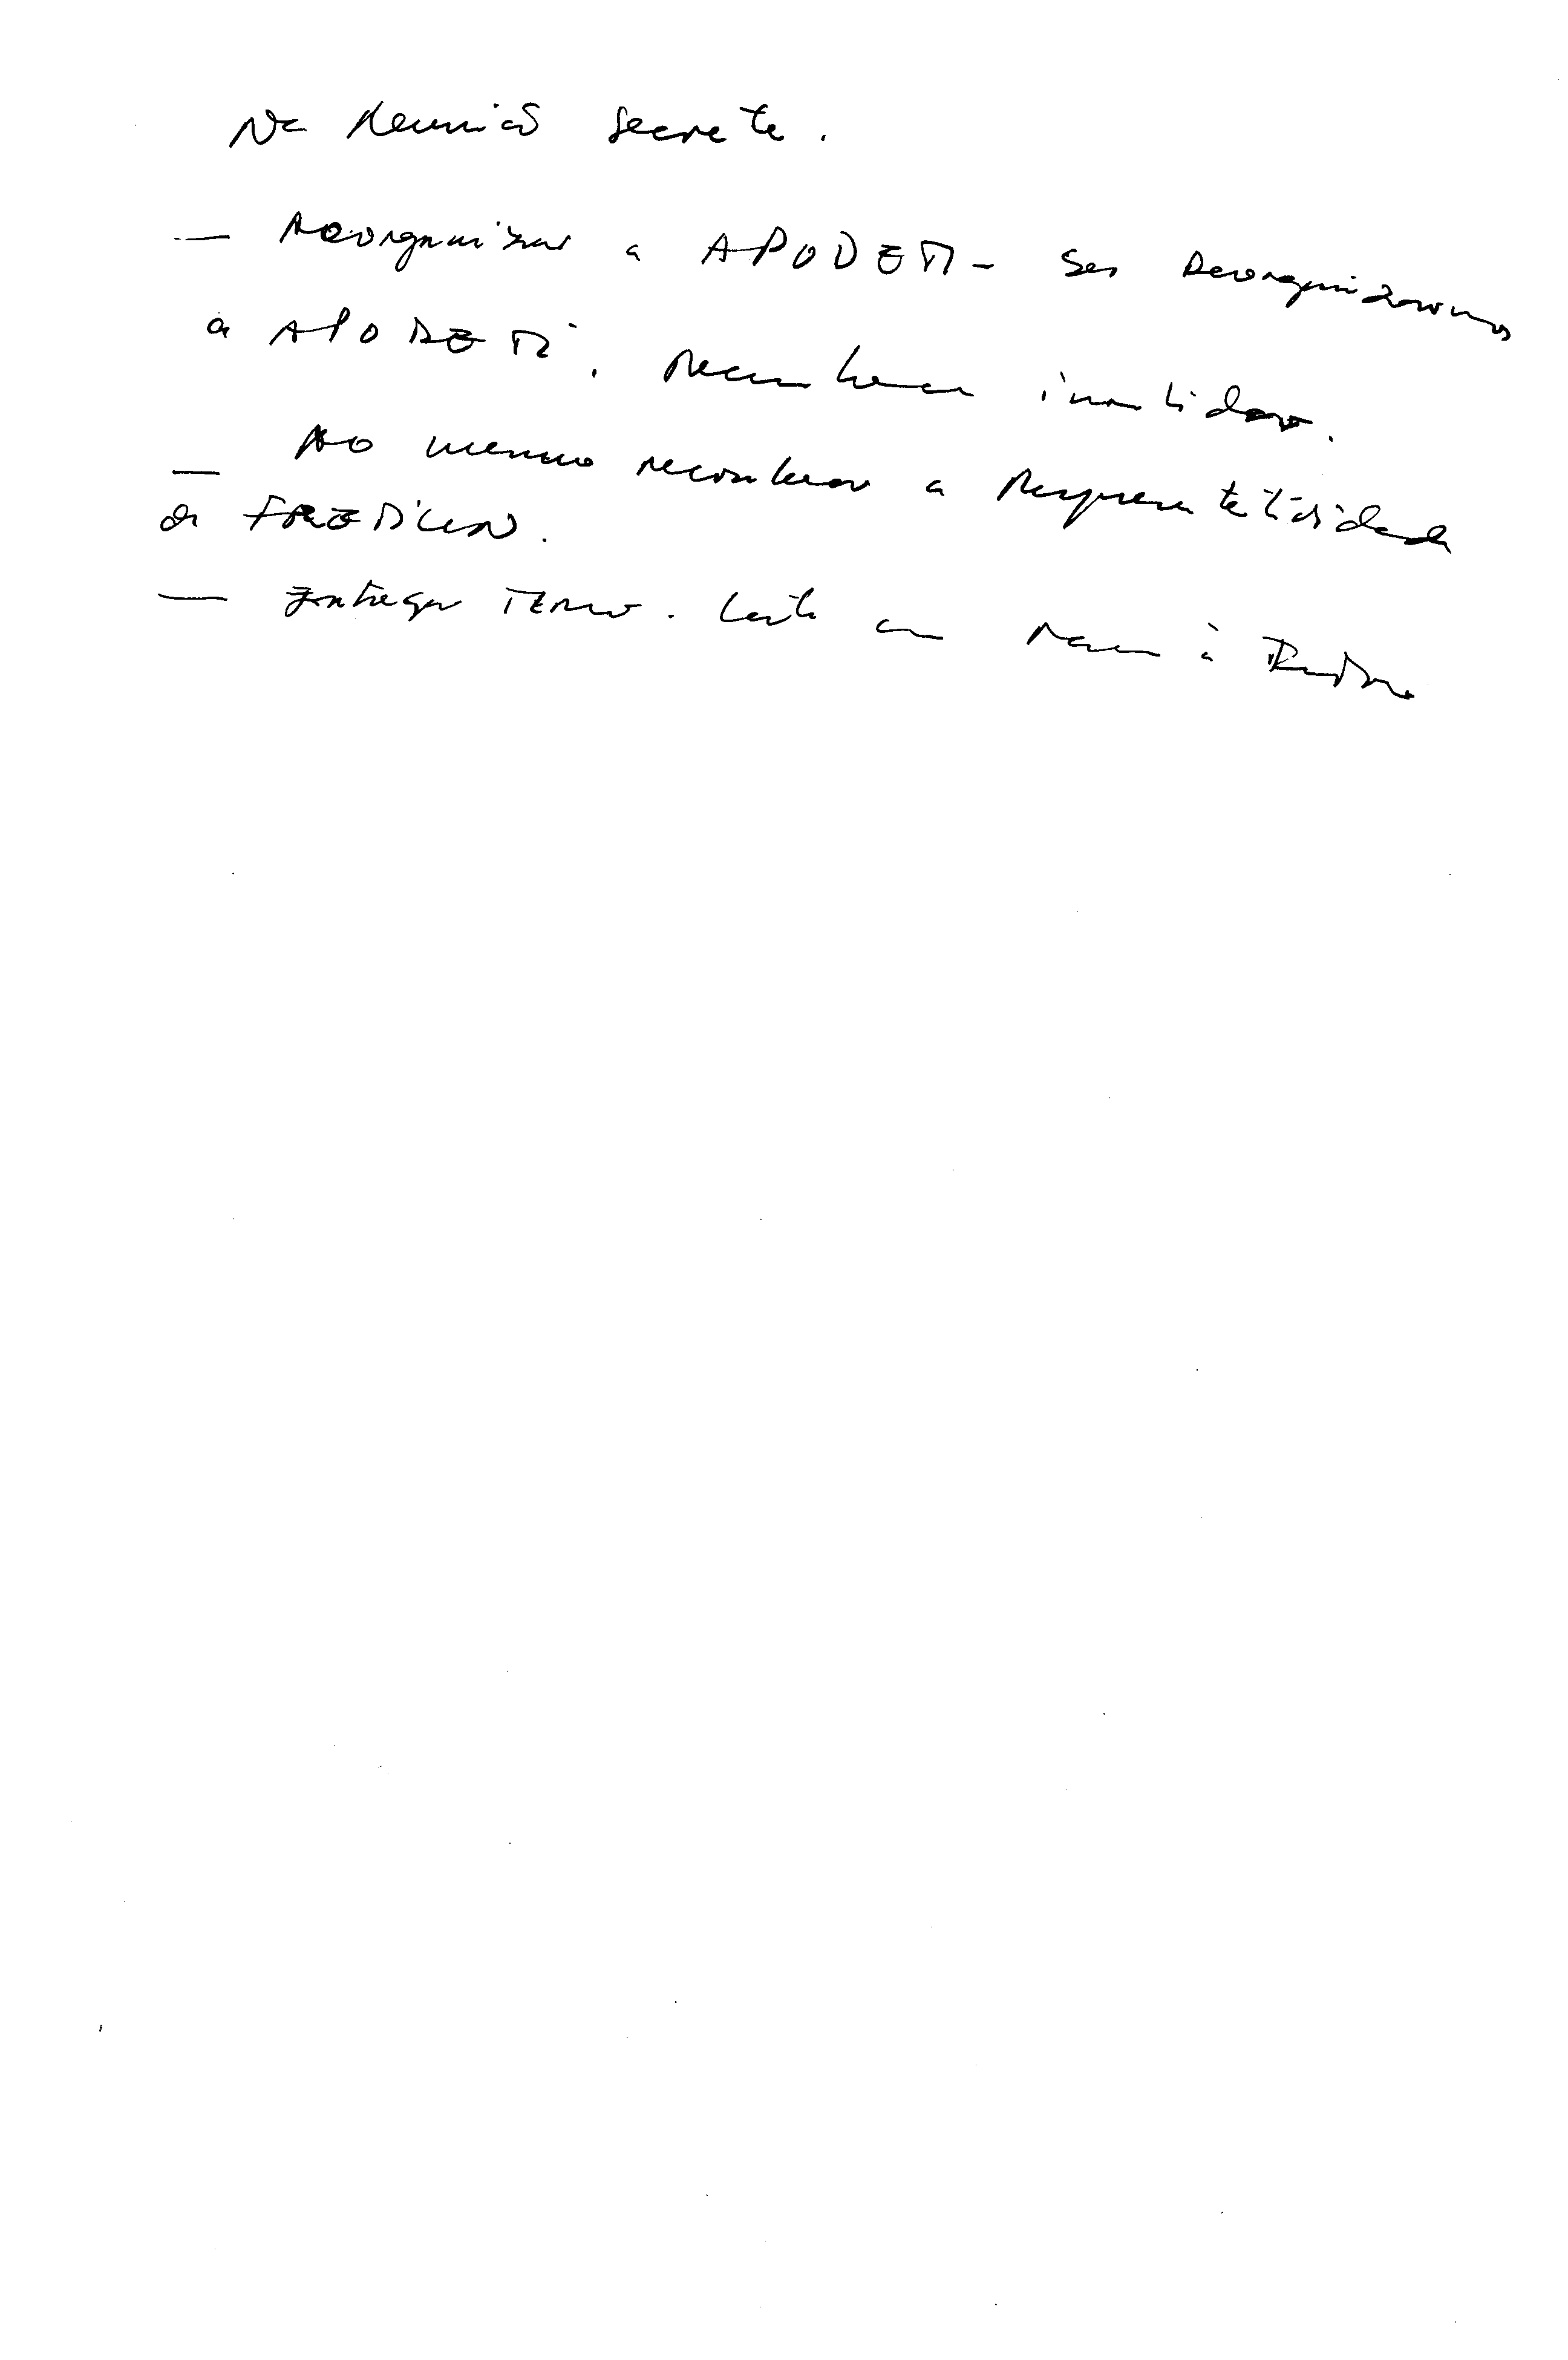 Na Reunião secreta.
— Reorganizar a APODETI - Se reorganizarmos
a APODETI. Reconhecer
— Ao mesmo reconhecer a Representatividade
da FRETILIN.
— Entregar Timor. Carta em à